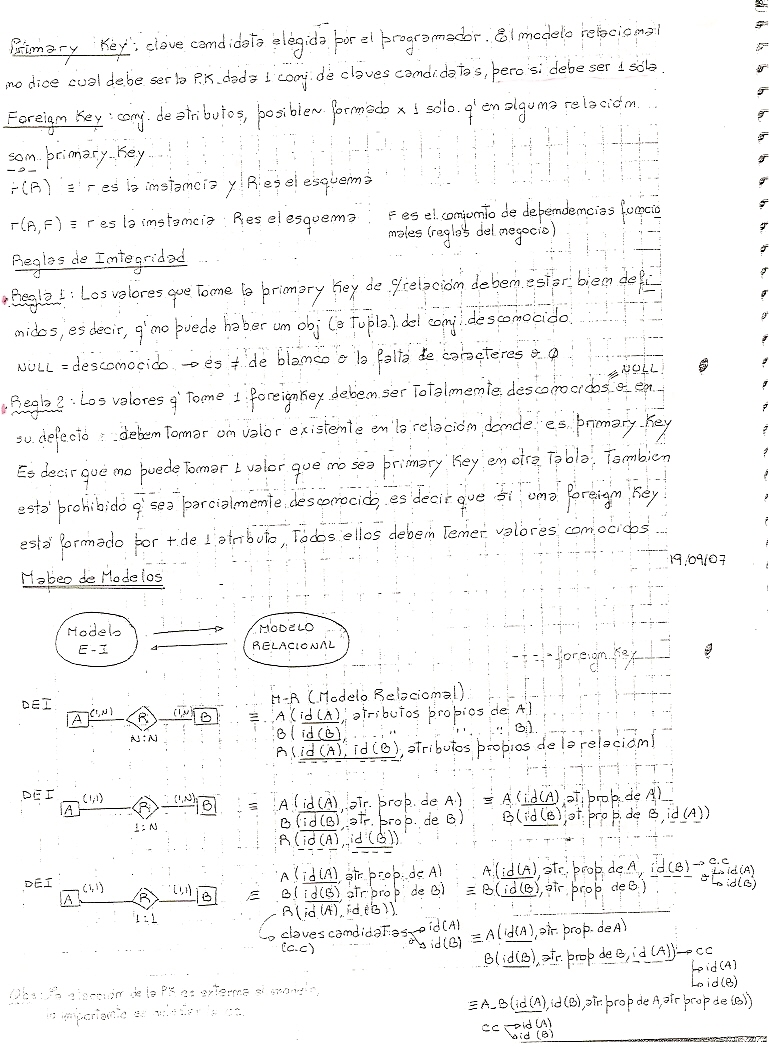 Primary Key: clave candidata elegida por el programador. El modelo relacional
no dice cual debe ser la P.K. dada 1 conj. de claves candidatas, pero si debe ser 1 sóla.
Foreign Key: conj. de atributos, posiblen formado x 1 sólo. q' en alguna relación
son primary Key
r(R) ≡ r es la instancia y R es el esquema
r(R,F) ≡ r es la instancia R es el esquema F es el conjunto de dependencias funcio
nales (reglas del negocio)
Reglas de Integridad
Regla 1: Los valores que tome la primary Key de c/relación deben estar bien defi_
nidos, es decir, q' no puede haber un obj (o Tupla) del conj. desconocido
NULL = desconocido → es ≠ de blanco o la falta de caracteres o ∅
= NULL
Regla 2: Los valores q' tome 1 foreign Key deben ser Totalmente desconocidos o en
su defecto: deben tomar un valor existente en la relación donde es primary Key
Es decir que no puede tomar 1 valor que no sea primary Key en otra Tabla. Tambien
está prohibido q' sea parcialmente desconocido, es decir que si una foreign Key
está formado por + de 1 atributo, Todos ellos deben tener valores conocidos
19/09/07
Mapeo de Modelos
Modelo
E-I
MODELO
RELACIONAL
---- foreign Key
DEI
A (1,N) R (1,N) B
N:N
M-R (Modelo Relacional)
≡ A (id(A), atributos propios de A)
B (id(B), " " " B)
R (id(A), id(B), atributos propios de la relación)
DEI
A (1,1) R (1,N) B
1:N
≡ A (id(A), atr. prop. de A)
B (id(B), atr. prop. de B)
R (id(A), id(B))
≡ A (id(A), at. prop. de A)
B (id(B), at. prop. de B, id(A))
DEI
A (1,1) R (1,1) B
1:1
≡ A (id(A), atr. prop. de A)
B (id(B), atr. prop de B)
R (id(A), id(B))
claves candidatas → id(A)
(c.c) o id(B)
≡ A (id(A), atr. prop de A, id(B)) → c.c.
id(A)
id(B)
B (id(B), atr. prop de B)
≡ A (id(A), atr. prop. de A)
B (id(B), atr. prop de B, id(A)) → cc
id(A)
id(B)
≡ A_B (id(A), id(B), atr prop de A, atr prop de (B))
cc id(A)
id(B)
elección de la PK es externa al